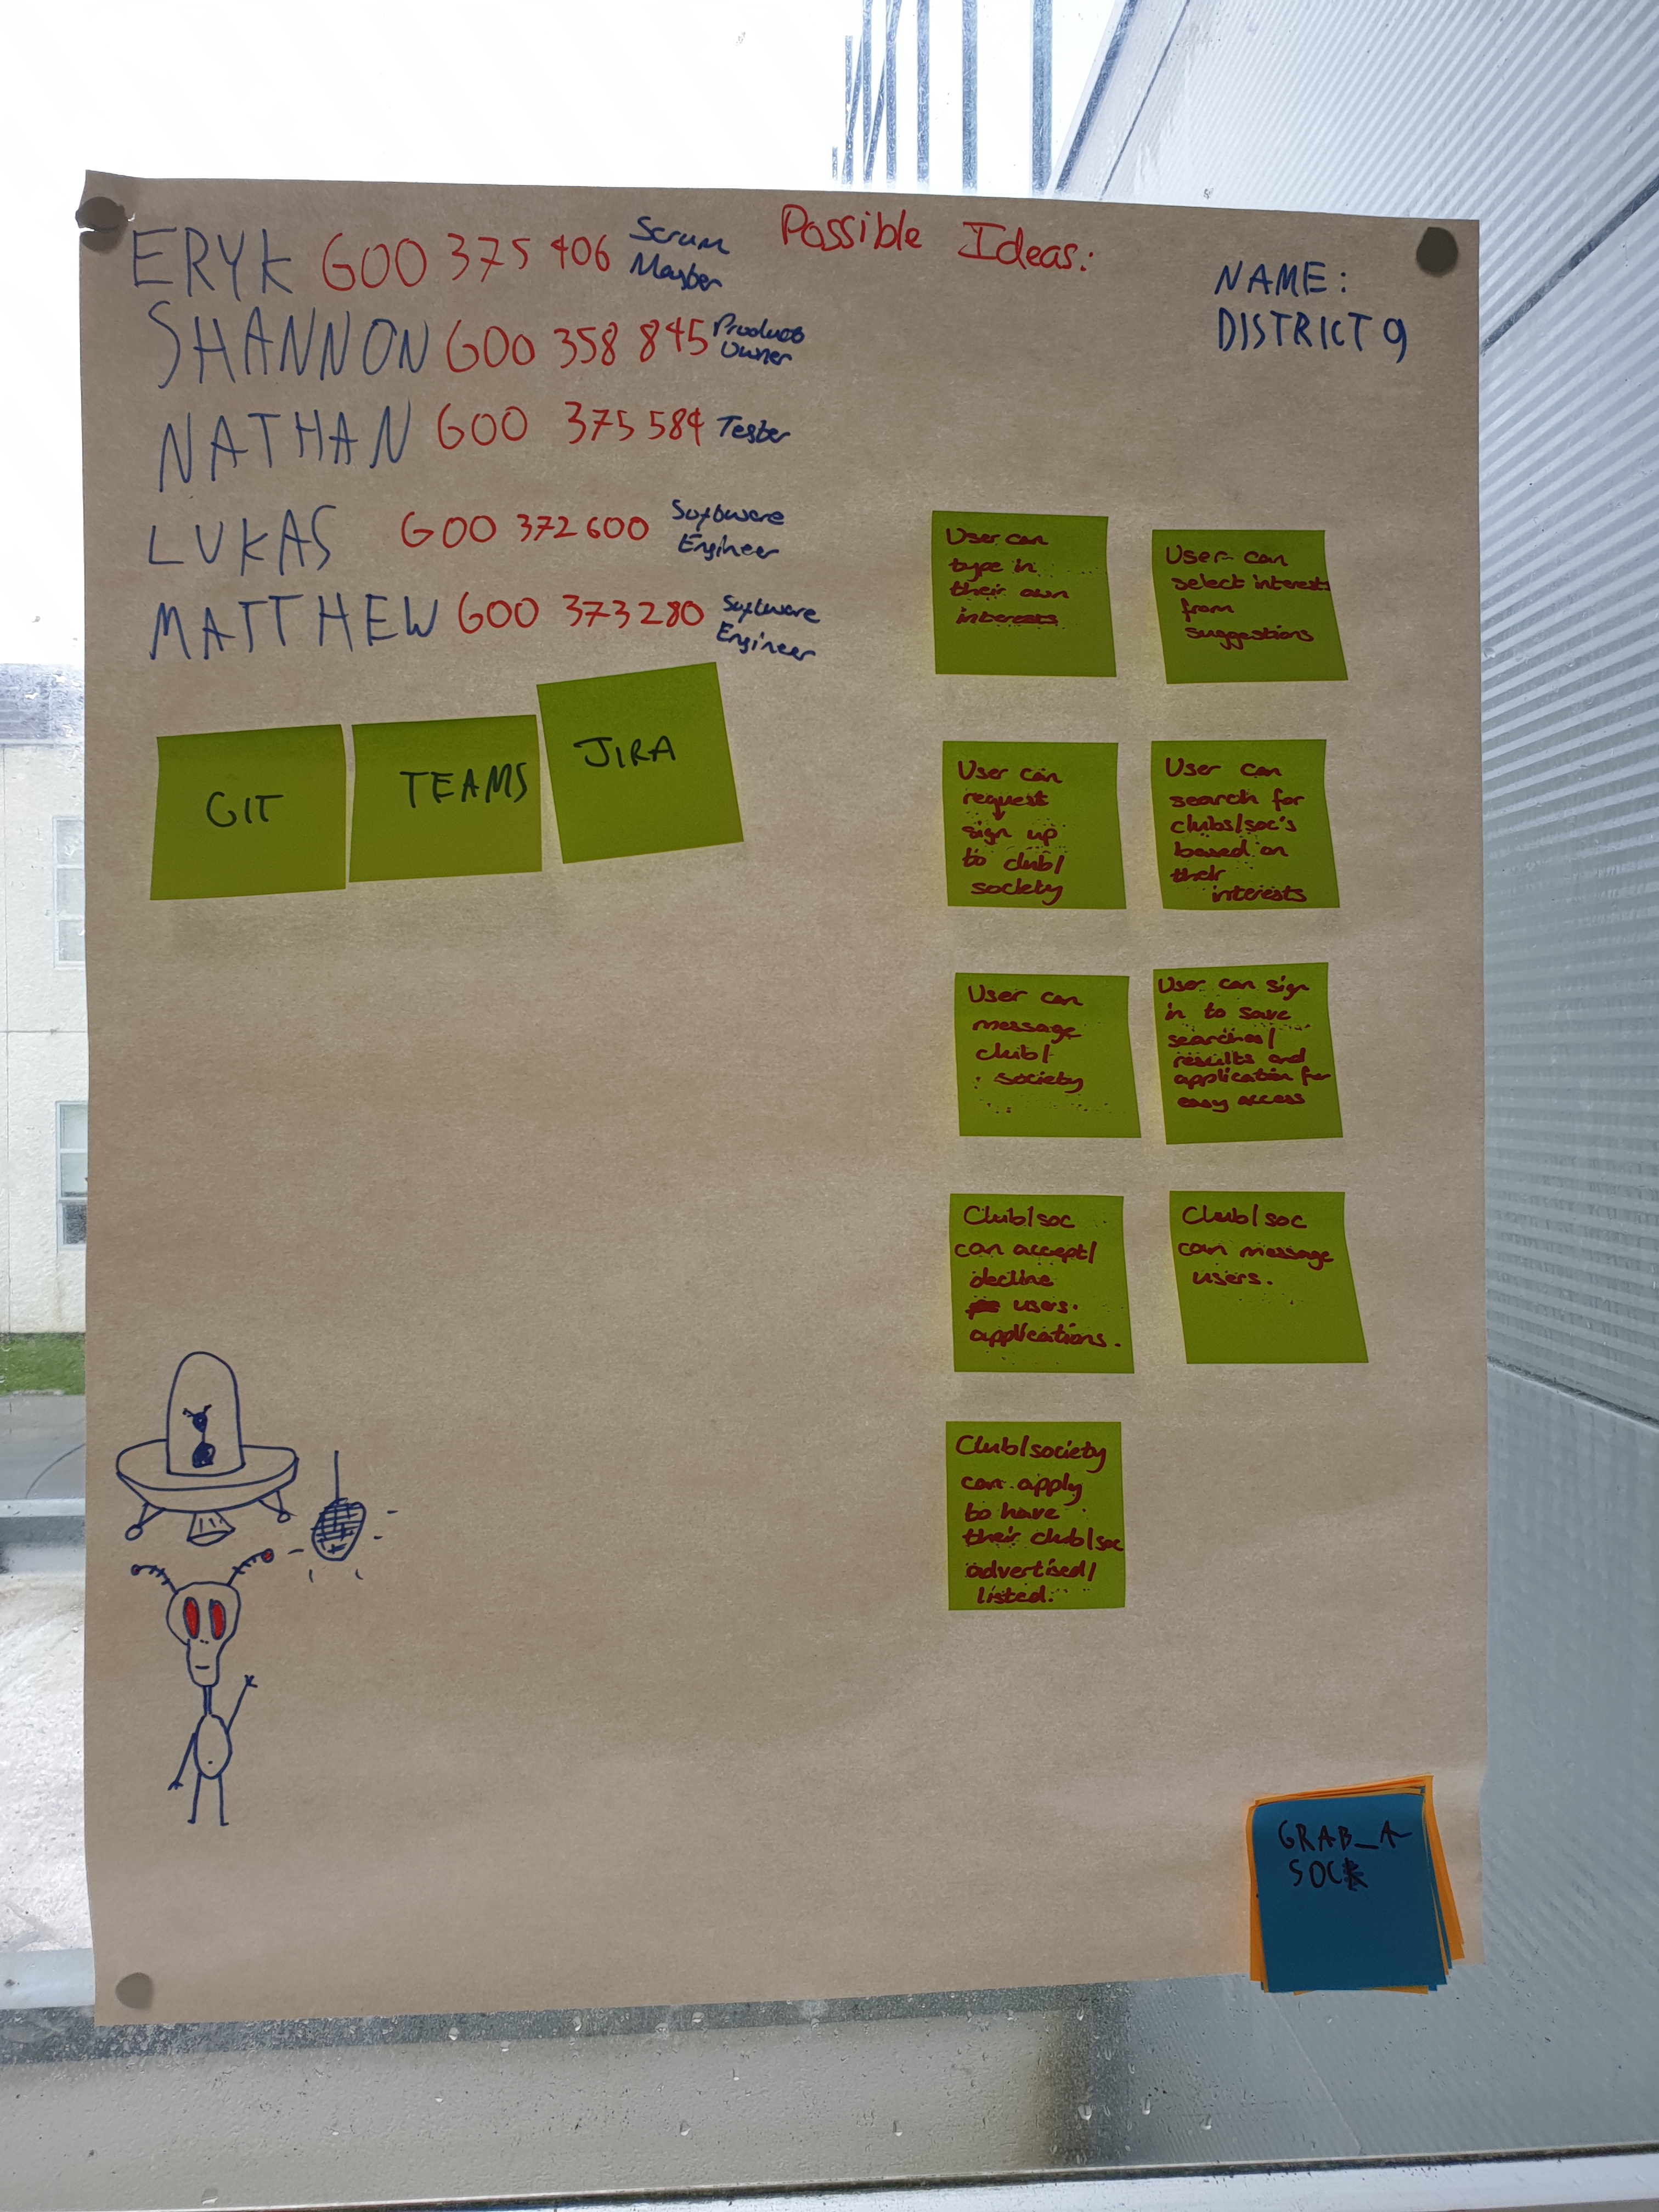 ERYK G00 375 406 Scrum
Master
SHANNON G00 358 845 Product
Owner
NATHAN G00 375 584 Tester
LUKAS G00 372 600 Software
Engineer
MATTHEW G00 373280 Software
Engineer
GIT
TEAMS
JIRA
Possible Ideas:
NAME:
DISTRICT 9
User can
type in
their own
interests
User can
select interests
from
suggestions
User can
request
sign up
to club/
society
User can
search for
clubs/soc's
based on
their
interests
User can
message
club/
society
User can sign
in to save
searches/
results and
application for
easy access
Club/soc
can accept/
decline
users.
applications.
Club/soc
can message
users.
Club/society
can apply
to have
their club/soc
advertised/
listed.
GRAB_A
SOCK